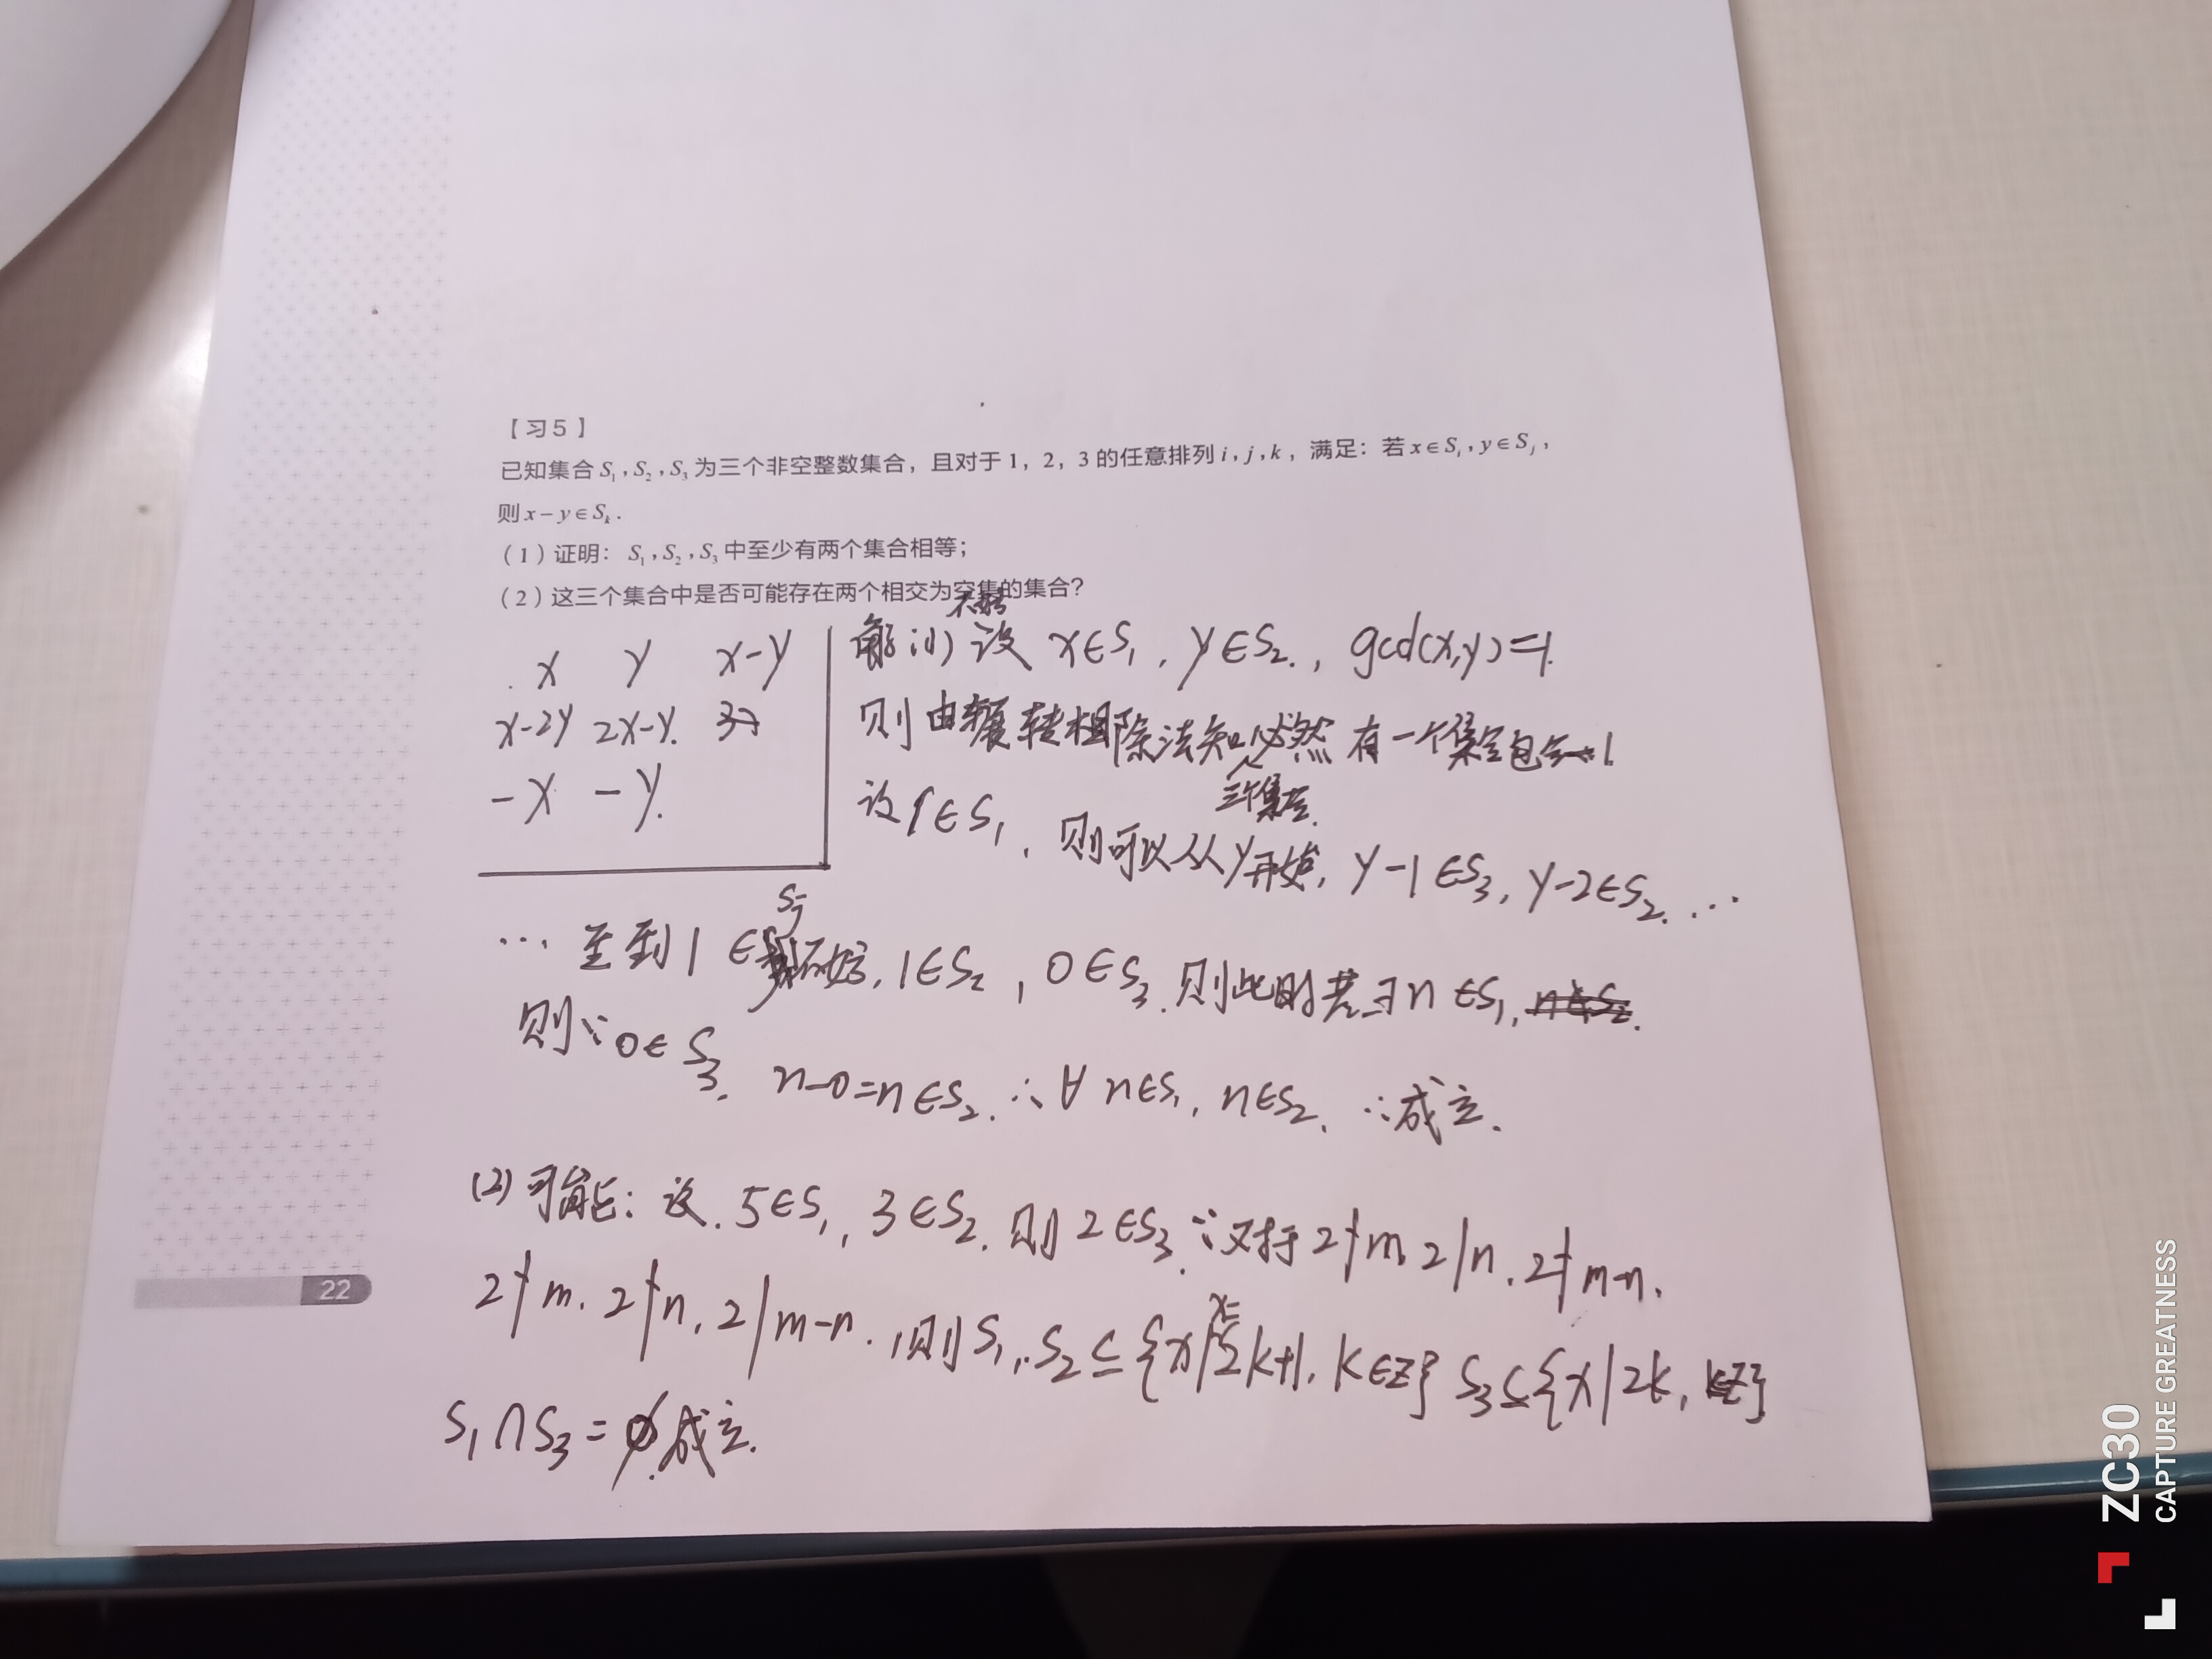 【习5】
已知集合 S₁,S₂,S₃ 为三个非空整数集合，且对于1，2，3的任意排列 i,j,k，满足：若 x∈Sᵢ,y∈Sⱼ，
则 x−y∈Sₖ.
（1）证明：S₁,S₂,S₃ 中至少有两个集合相等；
（2）这三个集合中是否可能存在两个相交为空集的集合？
x y x-y
x-2y 2x-y.
-x -y.
解(1) 设 x∈S₁, y∈S₂., gcd(x,y)=1.
则由辗转相除法知必然有一个集合包含1.
三个集合.
设1∈S₁, 则可以从y开始, y-1∈S₃, y-2∈S₂. ...
... 至到1∈Sⱼ 不妨, 1∈S₂, 0∈S₃. 则此时若∃n∈S₁, n∈S₂.
则∵0∈S₃. n-0=n∈S₂. ∴∀n∈S₁, n∈S₂. ∴成立.
(2)可能: 设. 5∈S₁, 3∈S₂. 则2∈S₃. ∵对于2∤m. 2|n. 2∤m-n.
2∤m. 2∤n. 2|m-n. 则S₁, S₂⊆{x|x=2k+1, k∈Z} S₃⊆{x|2k, k∈Z}
S₁∩S₃=∅.成立.
22
ZC30
CAPTURE GREATNESS